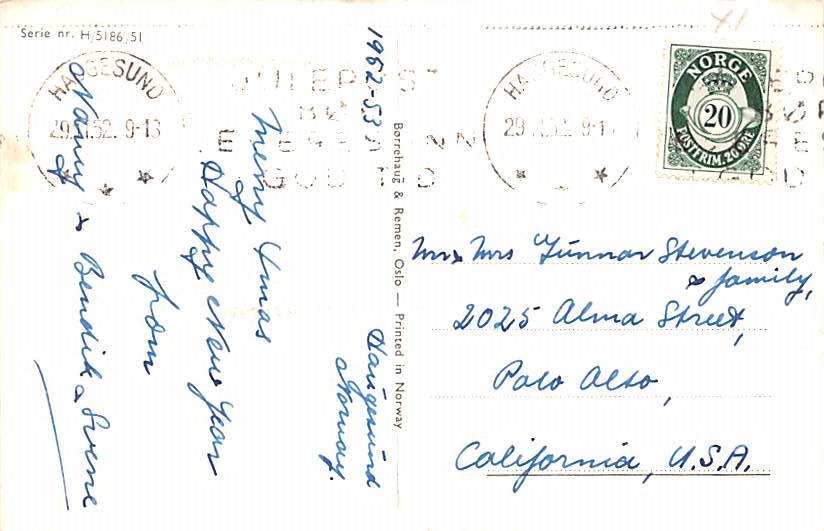 Serie nr. H/5186/51
HAUGESUND
29.XI.52. 9-13
HAUGESUND
NORGE
20
POSTFRIM. 20 ØRE
XI
1952-53
Merry Xmas
Happy New Year
from
Nanny & Bendik & Svene
Haugesund
Norway.
Borrehaug & Remen, Oslo — Printed in Norway
Mr & Mrs Gunnar Stevenson
& family,
2025 Alma Street,
Palo Alto,
California, U.S.A.